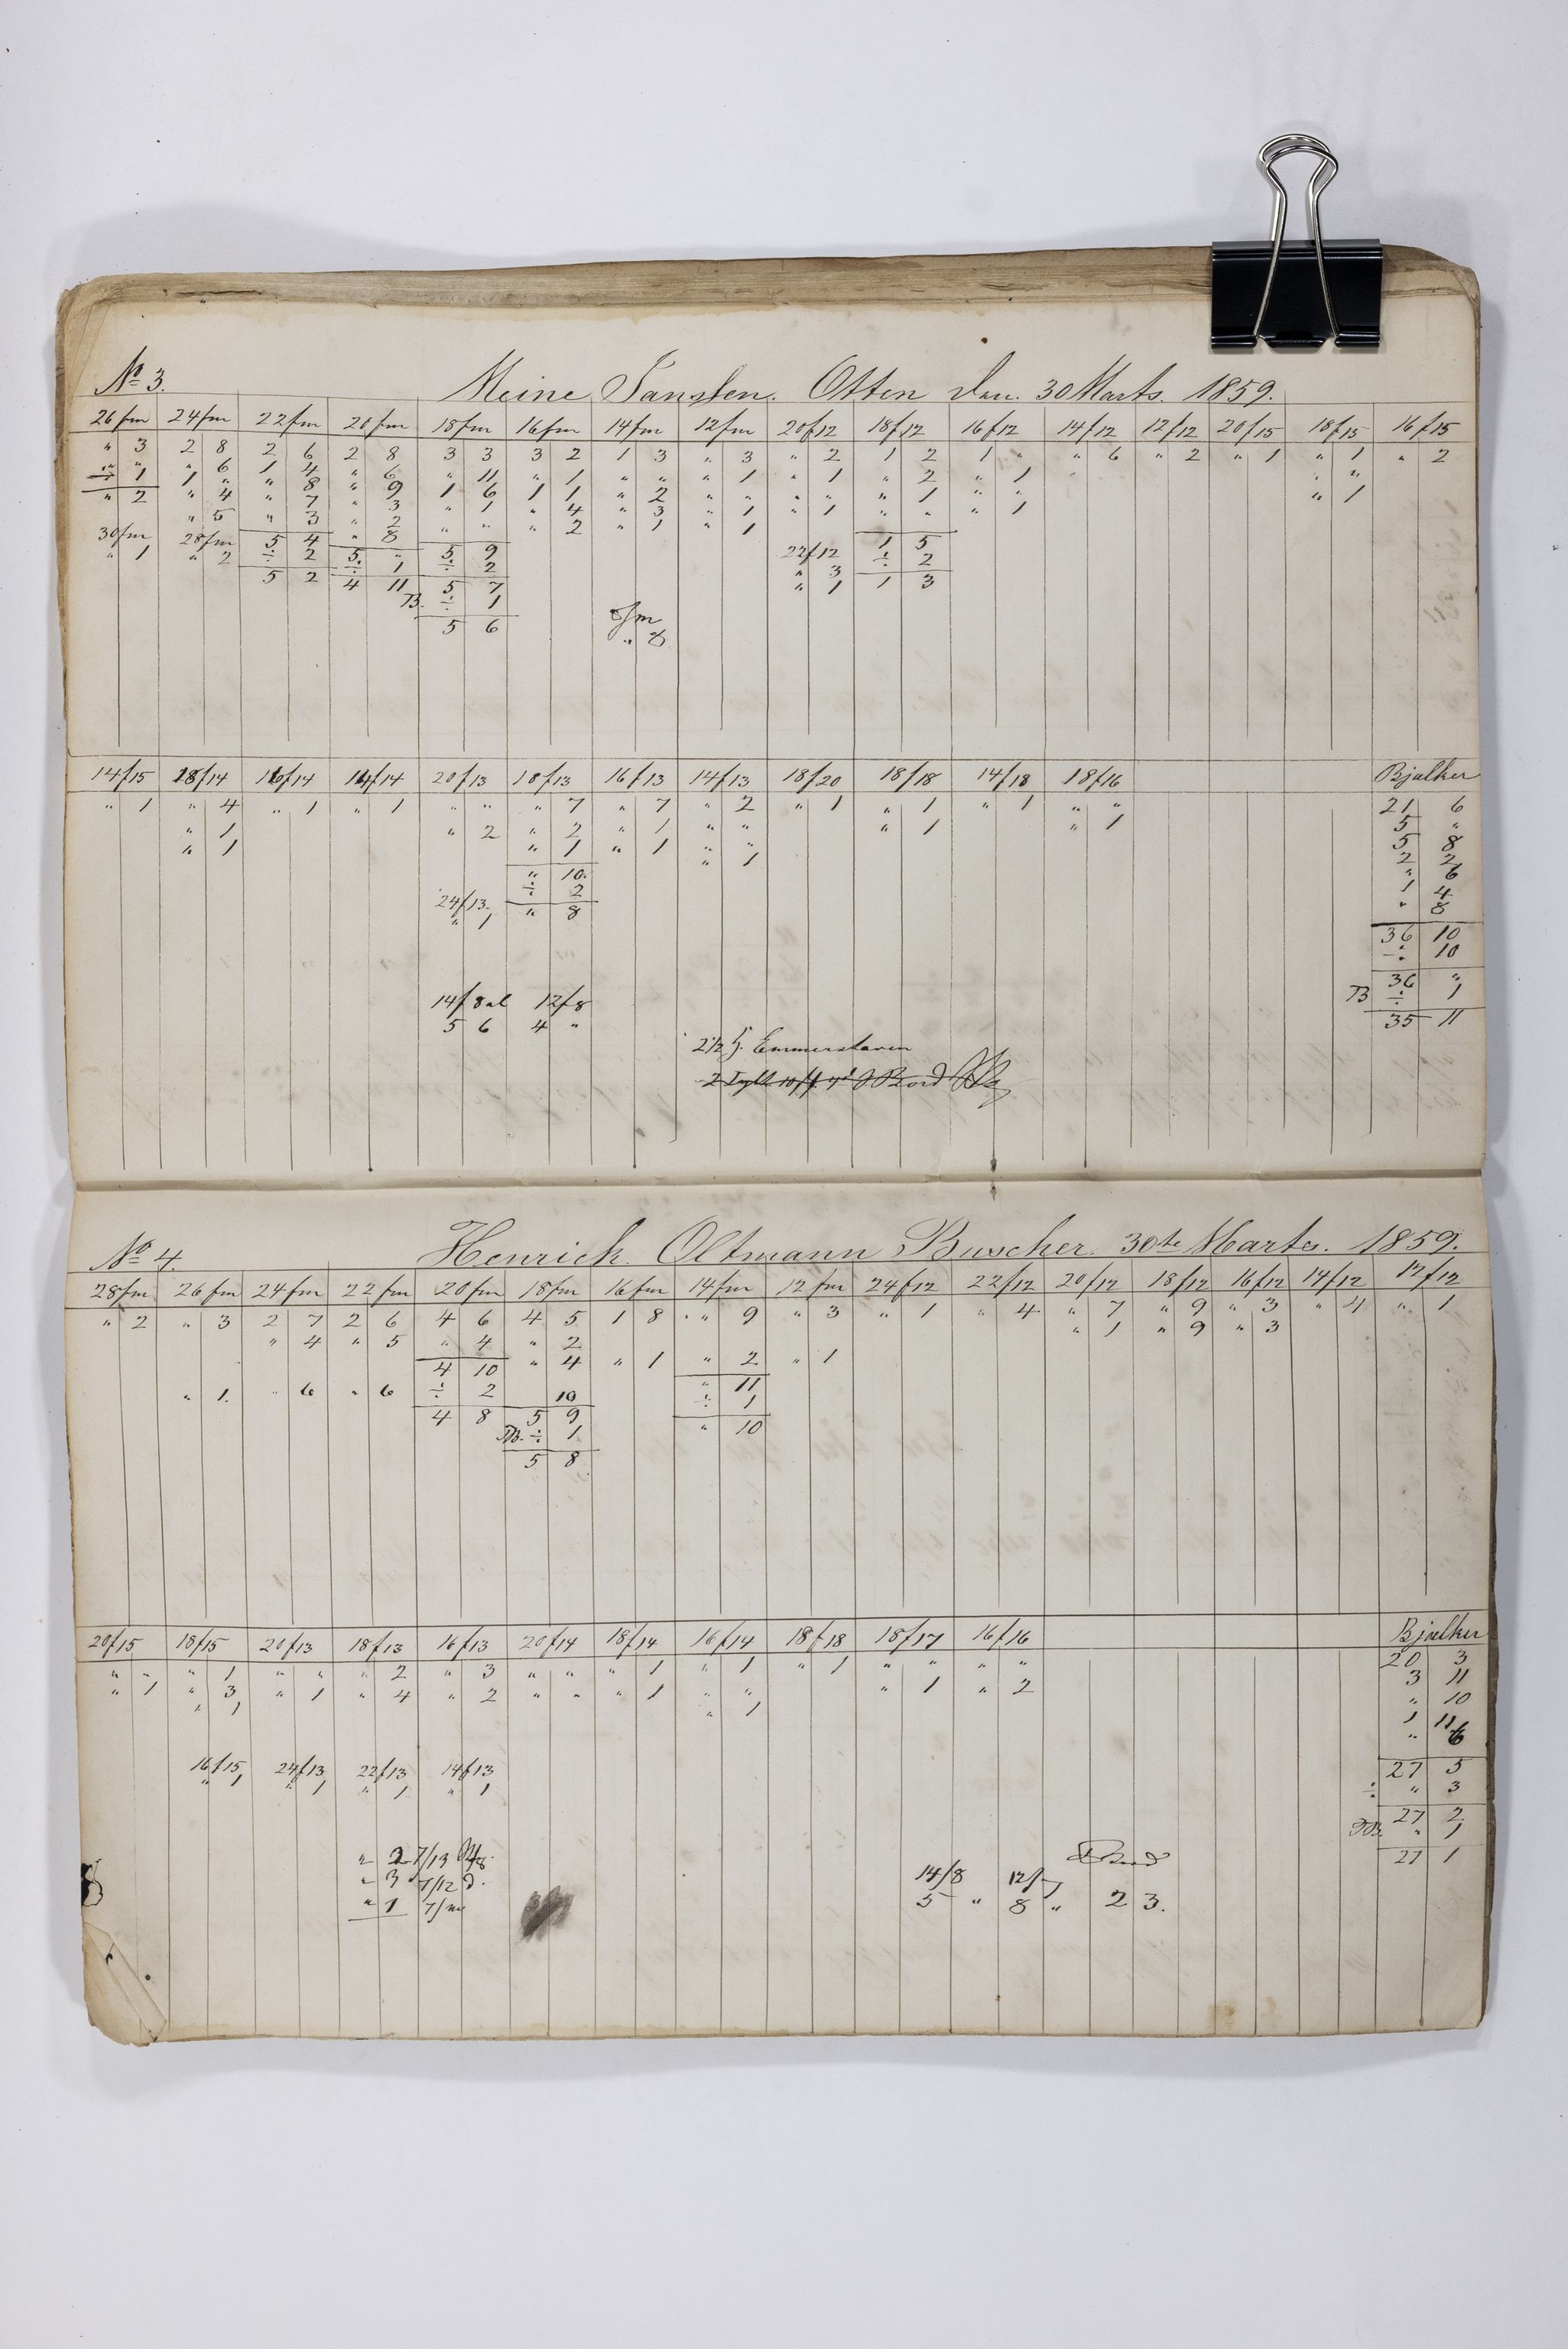 No 3. Meine Janssen. Otten den. 30 Marts. 1859.
26 fm 24 fm 22 fm 20 fm 18 fm 16 fm 14 fm 12 fm 20f12 18f12 16f12 14/12 12/12 20/15 18f15 16f15
" 3 2 8 2 6 2 8 3 3 3 2 1 3 " 3 " 2 1 2 1 " " 6 " 2 " 1 " 1 " 2
÷ 1 " 6 1 4 " 6 " 11 " 1 " " " 1 " 1 " 2 " 1 " "
" 2 1 " " 8 " 9 1 6 1 1 " 2 " " " " " 1 " " " 1
" 4 " 7 " 3 " 1 " 4 " 3 " 1 " 1 " " " 1
" 5 " 3 " 2 " " " 2 " 1 " 1
30 fm 28 fm 5 4 " 8 5 9 22/12 1 5
" 1 " 2 ÷ 2 5 " ÷ 2 " 3 ÷ 2
5 2 ÷ 1 5 7 " 1 1 3
4 11 TB. ÷ 1 8fm
5 6 " 8
14/15 18/14 16f14 14f14 20f13 18f13 16f13 14f13 18/20 18/18 14f18 18f16 Bjalker
" 1 " 4 " 1 " 1 " " " 7 " 7 " 2 " 1 " 1 " 1 " " 21 6
" 1 " 2 " 2 " 1 " " " 1 " 1 5 "
" 1 " 1 " 1 " " 5 8
" 10. " 1 2 2
÷ 2 " 6
24/13. " 8 1 4
" 1 " 8
36 10
÷ 10
36 "
14f8al 12/8 TB ÷ 1
5 6 4 " 35 11
2 1/2 Emmerstaven
No 4. Henrich Oltmann Buscher. 30te Marts. 1859.
28fm 26 fm 24 fm 22 fm 20 fm 18 fm 16 fm 14 fm 12 fm 24f12 22/12 20/12 18/12 16f12 14f12 12/12
" 2 " 3 2 7 2 6 4 6 4 5 1 8 " 9 " 3 " 1 " 4 " 7 " 9 " 3 " 4 " 1
" 4 " 5 " 4 " 2 " 1 " 9 " 3
4 10 " 4 " 1 " 2 " 1
" 1. " 6 " 6 ÷ 2 10 " 11
4 8 5 9 ÷ 1
TB. ÷ 1 " 10
5 8
20f15 18/15 20f13 18f13 16f13 20f14 18f14 16f14 18f18 18f17 16f16 Bjalker
" " " 1 " " " 2 " 3 " " " 1 " 1 " 1 " " " " 20 3
" 1 " 3 " 1 " 4 " 2 " " " 1 " " " 1 " 2 3 11
" 1 " 1 " 10
1 11
" 6
16f15 24f13 22f13 14f13 27 5
" 1 " 1 " 1 " 1 ÷ " 3
27 2
TB. " 1
27 1
" 2 7/13
" 3 7/12 d. 14/8 12/7
" 1 7/m 5 " 8 " 2 3.